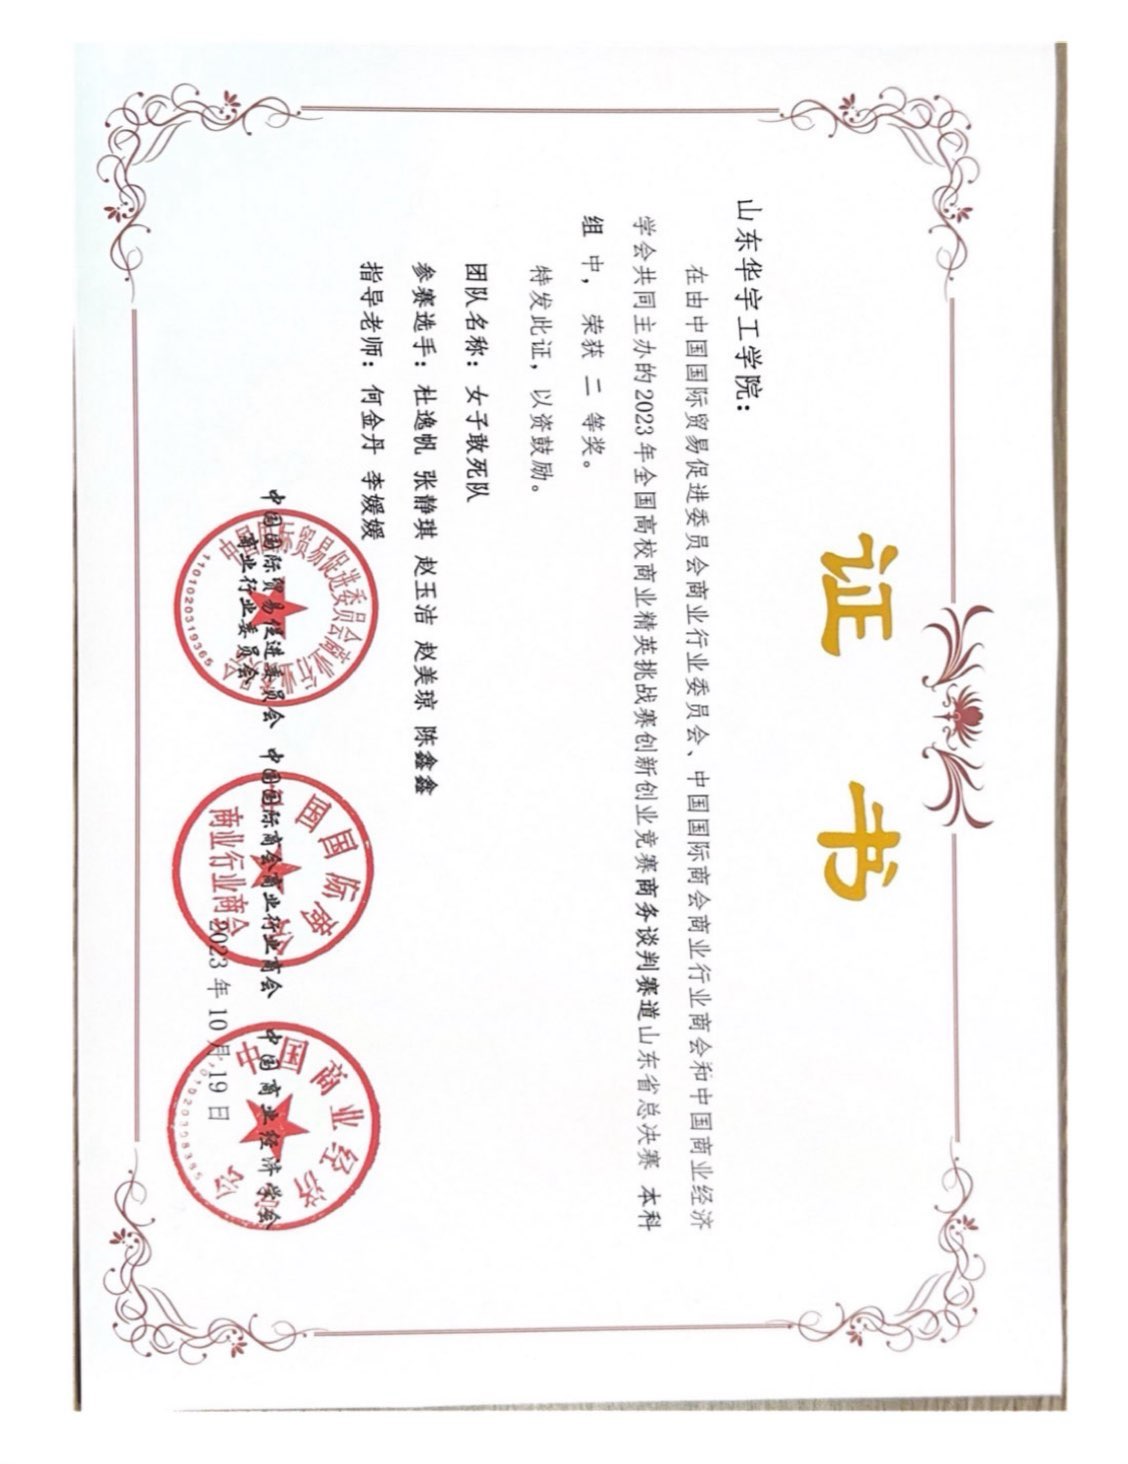 证 书
山东华宇工学院：
在由中国国际贸易促进委员会商业行业委员会、中国国际商会商业行业商会和中国商业经济
学会共同主办的2023年全国高校商业精英挑战赛创新创业竞赛商务谈判赛道山东省总决赛 本科
组 中， 荣获 二 等奖。
特发此证，以资鼓励。
团队名称：女子敢死队
参赛选手：杜逸帆 张静琪 赵玉洁 赵美琼 陈鑫鑫
指导老师：何金丹 李媛媛
中国国际贸易促进委员会 中国国际商会商业行业商会 中国商业经济学会
商业行业委员会
2023年10月19日
中国国际贸易促进委员会商业行业委员会
1101020319365
中国国际商会
商业行业商会
中国商业经济学会